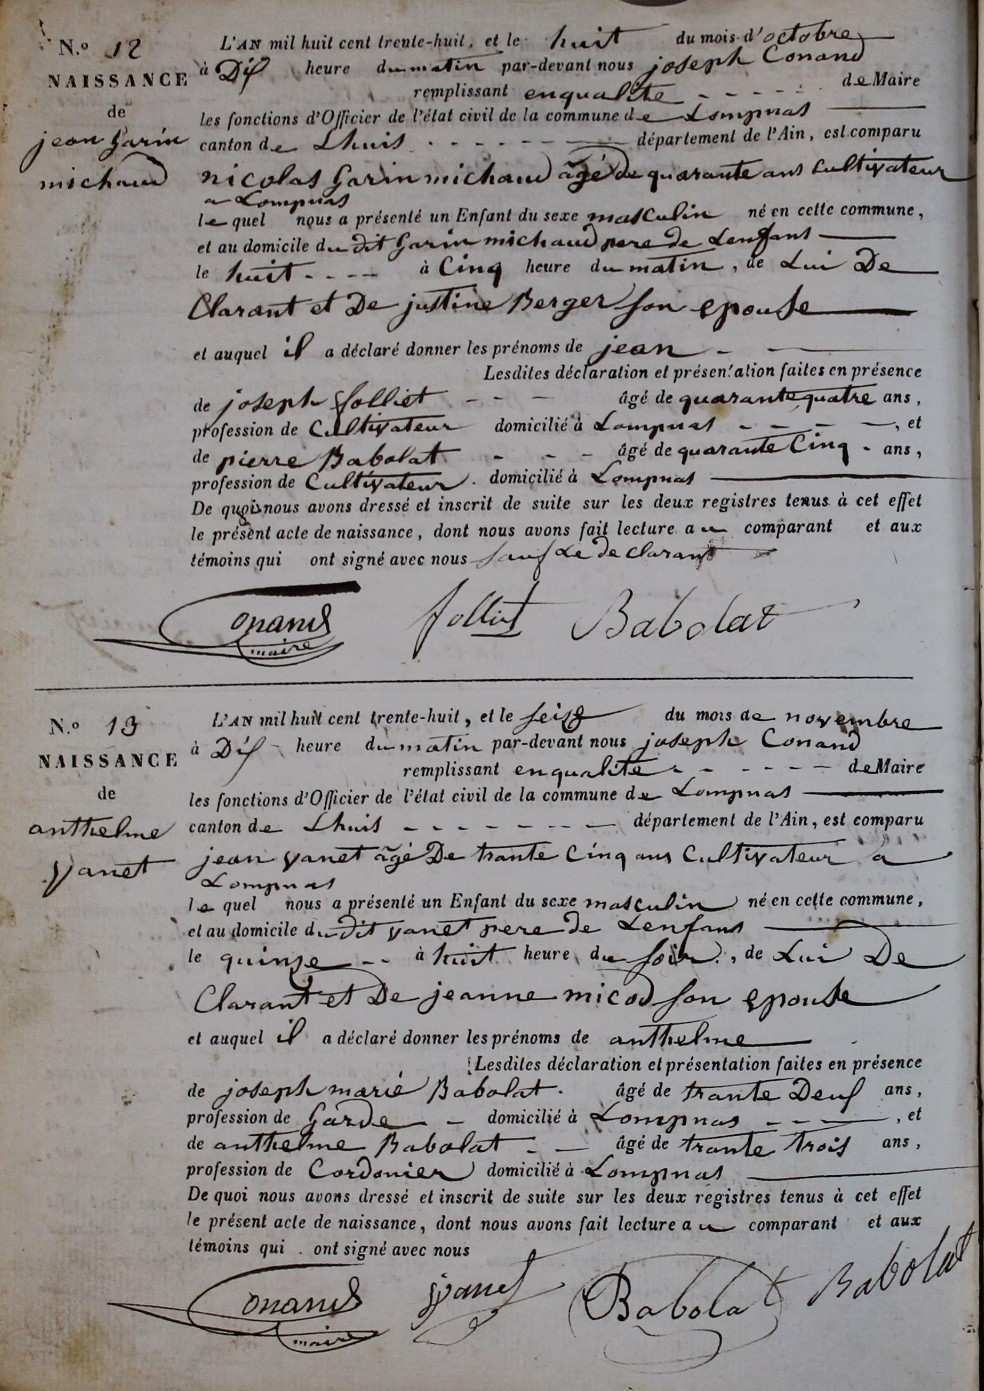 N.º 12
NAISSANCE
de
jean Garin
michaud
L'AN mil huit cent trente-huit, et le huit du mois d'octobre
à Dix heure du matin par-devant nous joseph Conand
remplissant enqualite - - - - - de Maire
les fonctions d'Officier de l'état civil de la commune de Lompnas
canton de Lhuis - - - - - - - département de l'Ain, est comparu
nicolas Garin michaud âgé de quarante ans Cultivateur
a Lompnas
le quel nous a présenté un Enfant du sexe masculin né en cette commune,
et au domicile du dit Garin michaud pere de Lenfans
le huit - - - - à Cinq heure du matin, de Lui De
Clarant et De justine Berger son epouse
et auquel il a déclaré donner les prénoms de jean - -
Lesdites déclaration et présentation faites en présence
de joseph folliet - - - âgé de quarante quatre ans,
profession de Cultivateur domicilié à Lompnas - - - -, et
de pierre Babolat - - - âgé de quarante Cinq - ans,
profession de Cultivateur. domicilié à Lompnas
De quoi nous avons dressé et inscrit de suite sur les deux registres tenus à cet effet
le présent acte de naissance, dont nous avons fait lecture au comparant et aux
témoins qui ont signé avec nous sauf Le de clarant
Conand
maire
folliet
Babolat
N.º 13
NAISSANCE
de
anthelme
yanet
L'AN mil huit cent trente-huit, et le seize du mois de novembre
à Dix heure du matin par-devant nous joseph Conand
remplissant enqualite - - - - - de Maire
les fonctions d'Officier de l'état civil de la commune de Lompnas
canton de Lhuis - - - - - - - département de l'Ain, est comparu
jean yanet âgé De trante Cinq ans Cultivateur a
Lompnas
le quel nous a présenté un Enfant du sexe masculin né en cette commune,
et au domicile du dit yanet pere de Lenfans
le quinze - - à huit heure du soir, de Lui De
Clarant et De jeanne micod son epouse
et auquel il a déclaré donner les prénoms de anthelme
Lesdites déclaration et présentation faites en présence
de joseph marie Babolat. âgé de trante Deux ans,
profession de Garde - domicilié à Lompnas - - - -, et
de anthelme Babolat - - âgé de trante trois ans,
profession de Cordonier domicilié à Lompnas
De quoi nous avons dressé et inscrit de suite sur les deux registres tenus à cet effet
le présent acte de naissance, dont nous avons fait lecture au comparant et aux
témoins qui ont signé avec nous
Conand
maire
yanet
Babolat
Babolat